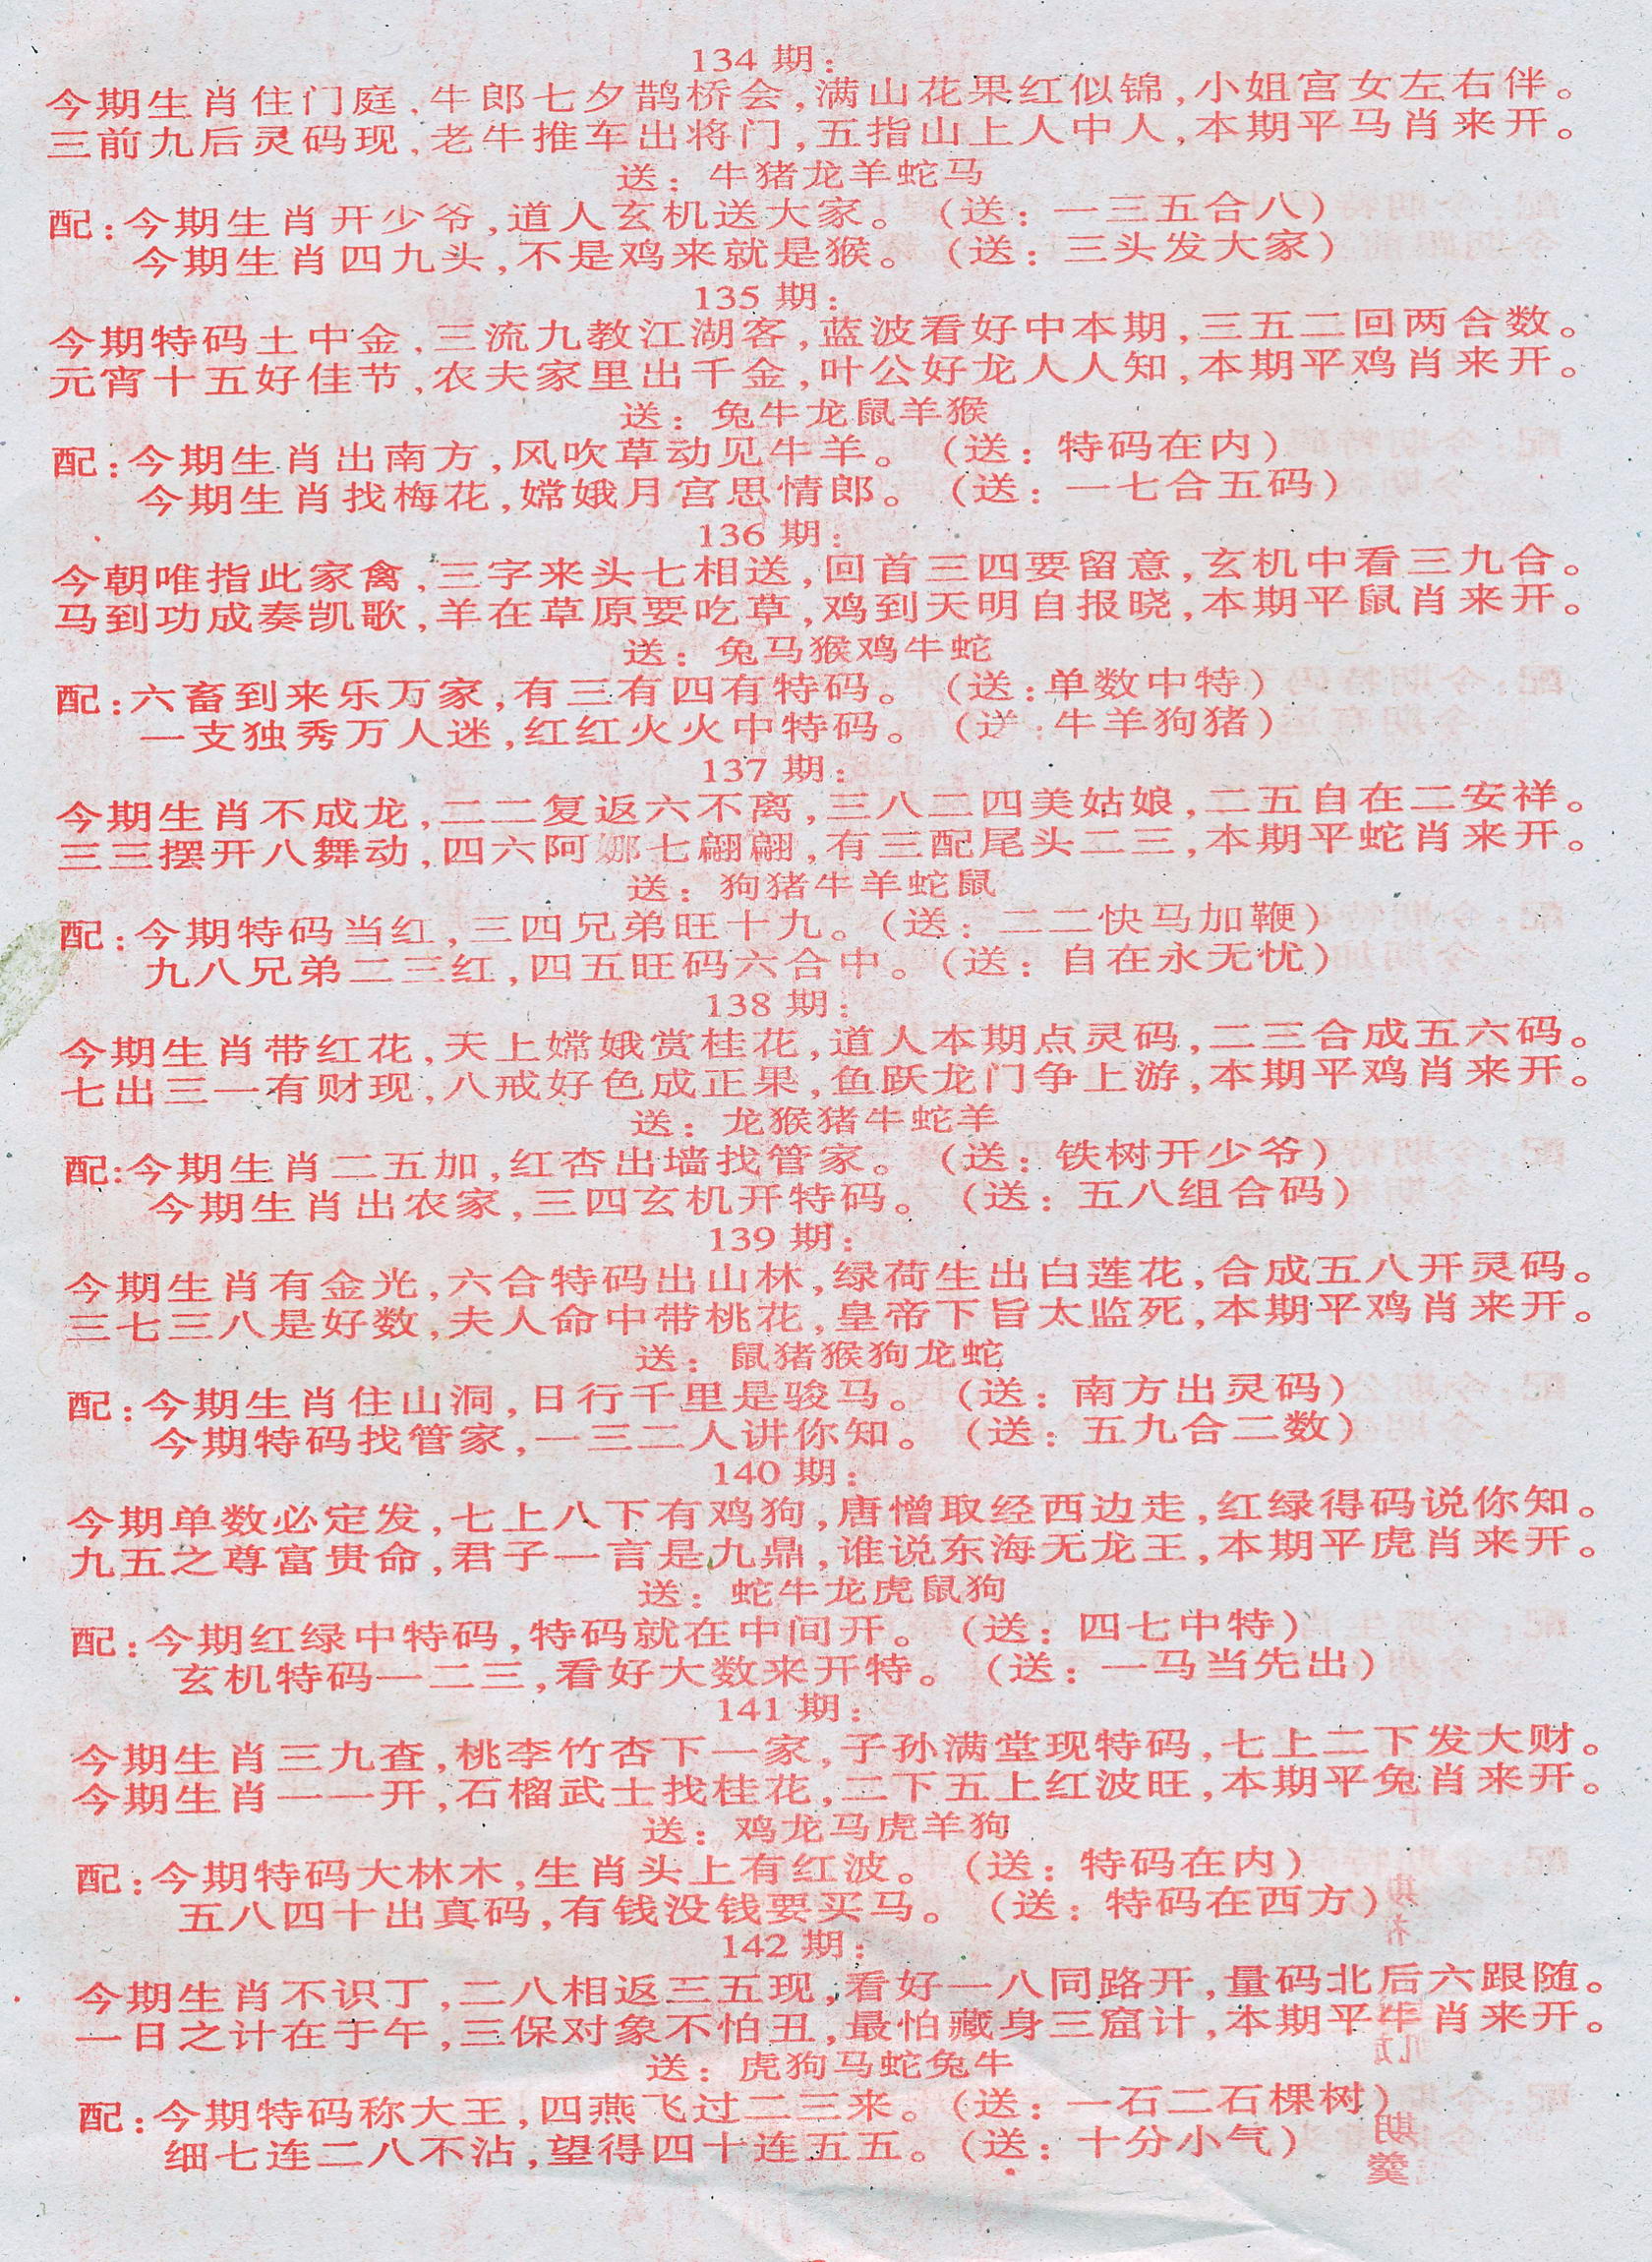 134 期:
今期生肖住门庭,牛郎七夕鹊桥会,满山花果红似锦,小姐宫女左右伴。
三前九后灵码现,老牛推车出将门,五指山上人中人,本期平马肖来开。
送: 牛猪龙羊蛇马
配:今期生肖开少爷,道人玄机送大家。(送: 一三五合八)
今期生肖四九头,不是鸡来就是猴。(送: 三头发大家)
135 期:
今期特码土中金,三流九教江湖客,蓝波看好中本期,三五二回两合数。
元宵十五好佳节,农夫家里出千金,叶公好龙人人知,本期平鸡肖来开。
送: 兔牛龙鼠羊猴
配:今期生肖出南方,风吹草动见牛羊。(送: 特码在内)
今期生肖找梅花,嫦娥月宫思情郎。(送: 一七合五码)
136 期:
今朝唯指此家禽,三字来头七相送,回首三四要留意,玄机中看三九合。
马到功成奏凯歌,羊在草原要吃草,鸡到天明自报晓,本期平鼠肖来开。
送: 兔马猴鸡牛蛇
配:六畜到来乐万家,有三有四有特码。(送:单数中特)
一支独秀万人迷,红红火火中特码。(送:牛羊狗猪)
137 期:
今期生肖不成龙,二二复返六不离,三八二四美姑娘,二五自在二安祥。
三三摆开八舞动,四六阿娜七翩翩,有三配尾头二三,本期平蛇肖来开。
送: 狗猪牛羊蛇鼠
配:今期特码当红,三四兄弟旺十九。(送: 二二快马加鞭)
九八兄弟二三红,四五旺码六合中。(送: 自在永无忧)
138 期:
今期生肖带红花,天上嫦娥赏桂花,道人本期点灵码,二三合成五六码。
七出三一有财现,八戒好色成正果,鱼跃龙门争上游,本期平鸡肖来开。
送: 龙猴猪牛蛇羊
配:今期生肖二五加,红杏出墙找管家。(送: 铁树开少爷)
今期生肖出农家,三四玄机开特码。(送: 五八组合码)
139 期:
今期生肖有金光,六合特码出山林,绿荷生出白莲花,合成五八开灵码。
三七三八是好数,夫人命中带桃花,皇帝下旨太监死,本期平鸡肖来开。
送: 鼠猪猴狗龙蛇
配:今期生肖住山洞,日行千里是骏马。(送: 南方出灵码)
今期特码找管家,一三二人讲你知。(送: 五九合二数)
140 期:
今期单数必定发,七上八下有鸡狗,唐憎取经西边走,红绿得码说你知。
九五之尊富贵命,君子一言是九鼎,谁说东海无龙王,本期平虎肖来开。
送: 蛇牛龙虎鼠狗
配:今期红绿中特码,特码就在中间开。(送: 四七中特)
玄机特码一二三,看好大数来开特。(送: 一马当先出)
141 期:
今期生肖三九查,桃李竹杏下一家,子孙满堂现特码,七上二下发大财。
今期生肖一一开,石榴武士找桂花,二下五上红波旺,本期平兔肖来开。
送: 鸡龙马虎羊狗
配:今期特码大林木,生肖头上有红波。(送: 特码在内)
五八四十出真码,有钱没钱要买马。(送: 特码在西方)
142 期:
今期生肖不识丁,二八相返三五现,看好一八同路开,量码北后六跟随。
一日之计在于午,三保对象不怕丑,最怕藏身三窟计,本期平牛肖来开。
送: 虎狗马蛇兔牛
配:今期特码称大王,四燕飞过二三来。(送: 一石二石棵树)
细七连二八不沾,望得四十连五五。(送: 十分小气)